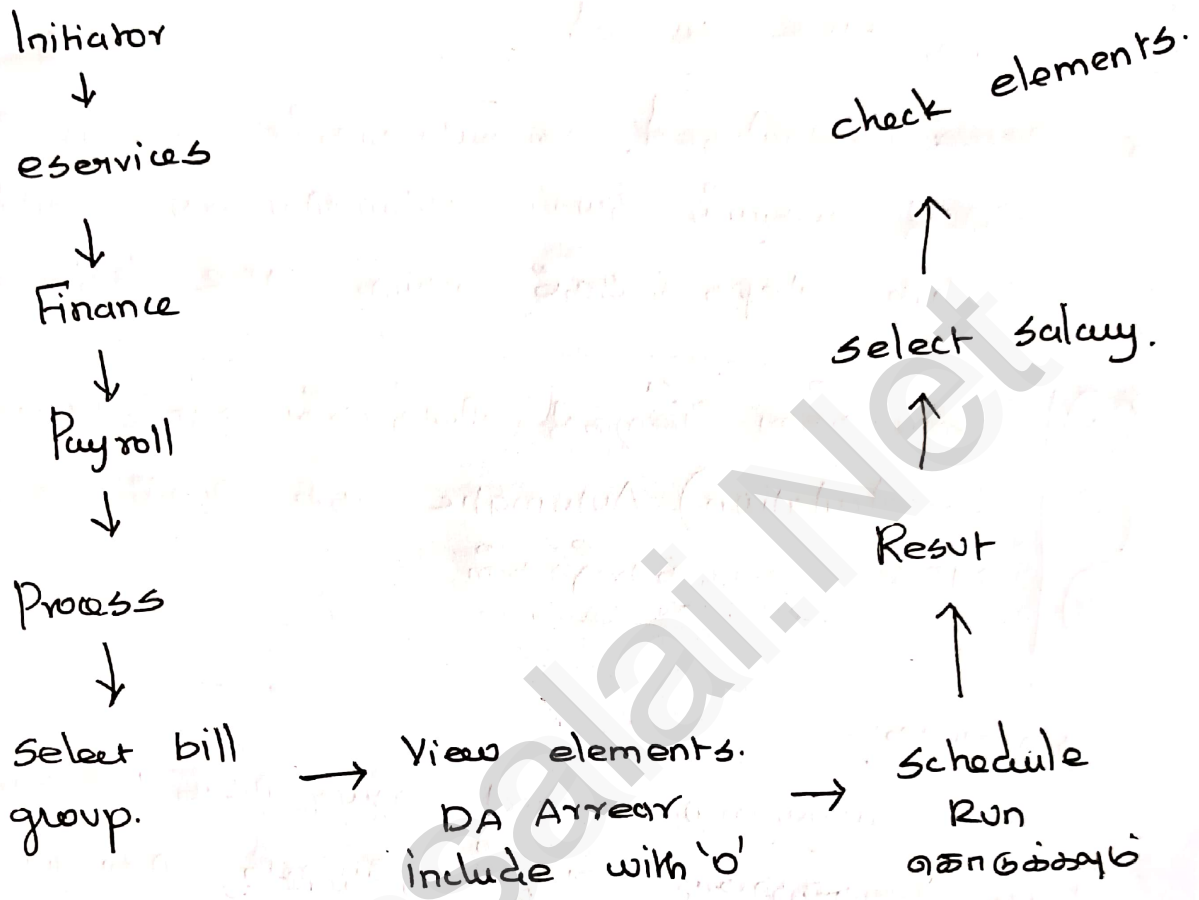 Initiator
↓
eservices
↓
Finance
↓
Payroll
↓
Process
↓
Select bill
group.
→
View elements.
DA Arrear
include with '0'
→
Schedule
Run
கொடுக்கவும்
↑
Resut
↑
select salary.
↑
check elements.
salai.Net